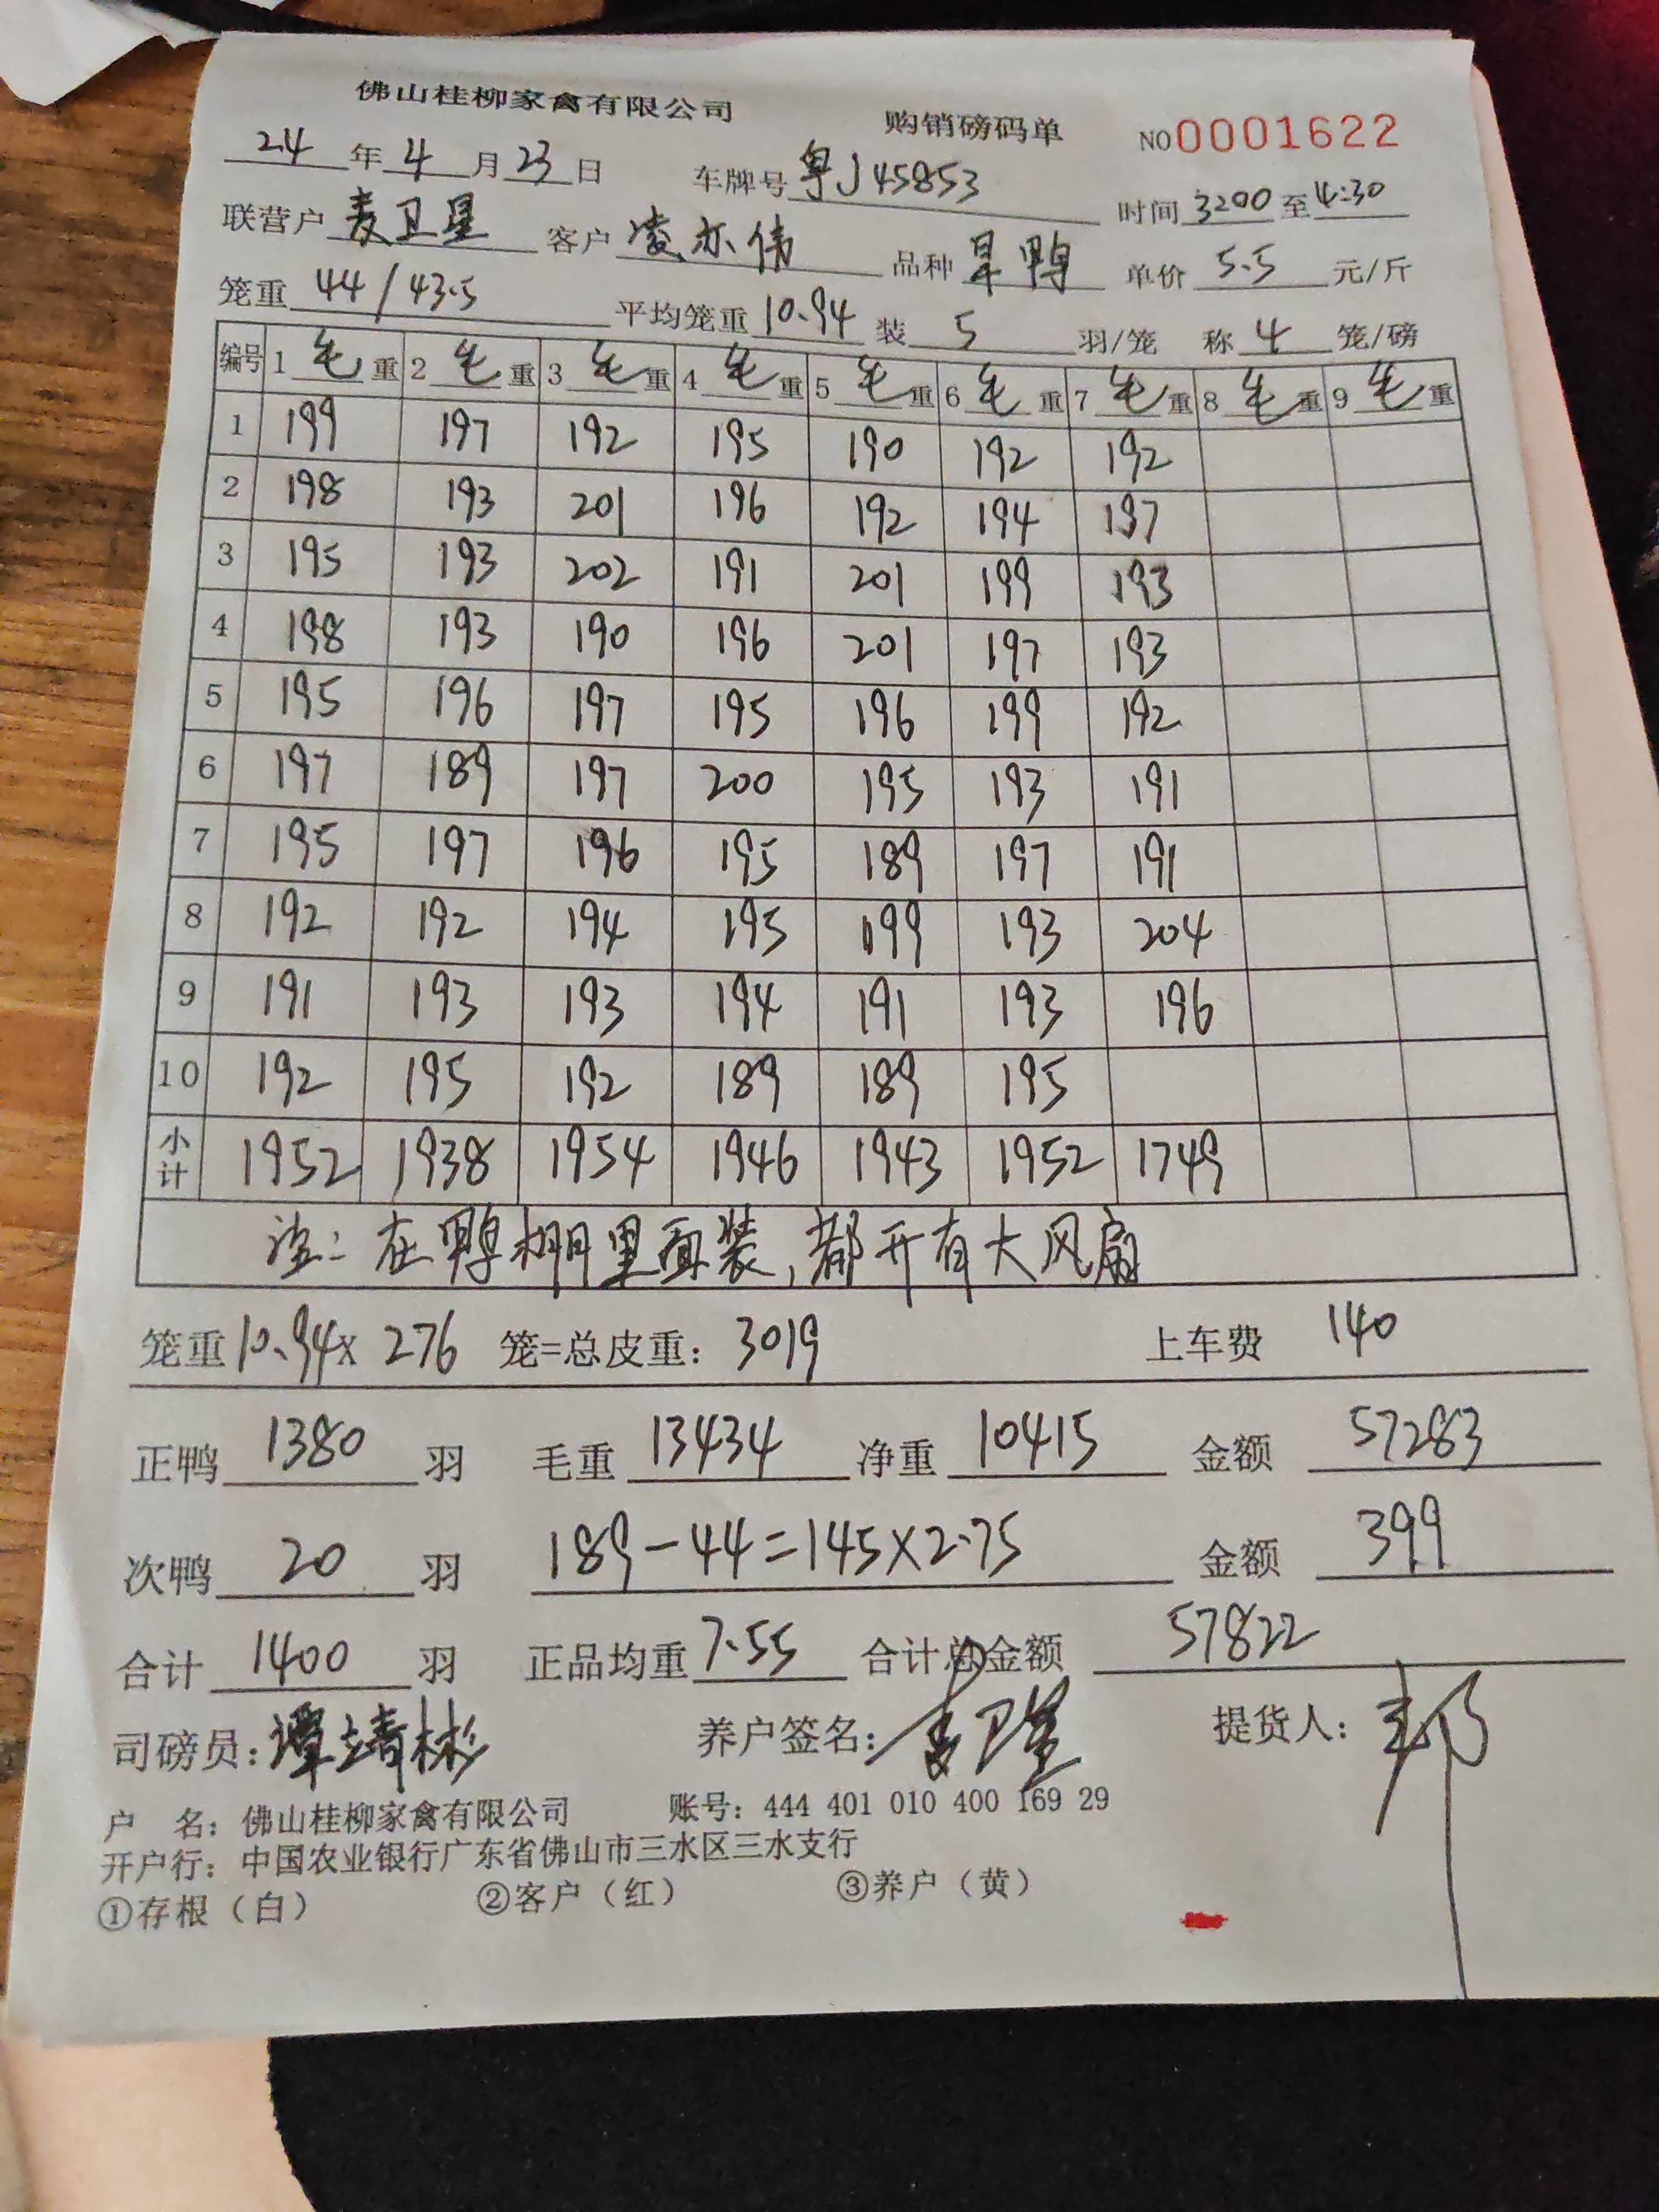 佛山桂柳家禽有限公司 购销磅码单 NO 0001622
24 年 4 月 23 日 车牌号 粤J45853 时间 3:00 至 4:30
联营户 麦卫星 客户 凌亦伟 品种 旱鸭 单价 5.5 元/斤
笼重 44/43.5 平均笼重 10.94 装 5 羽/笼 称 4 笼/磅
编号 1 毛 重 2 毛 重 3 毛 重 4 毛 重 5 毛 重 6 毛 重 7 毛 重 8 毛 重 9 毛 重
1 199 197 192 195 190 192 192
2 198 193 201 196 192 194 197
3 195 193 202 191 201 199 193
4 198 193 190 196 201 197 193
5 195 196 197 195 196 199 192
6 197 189 197 200 195 193 191
7 195 197 196 195 189 197 191
8 192 192 194 195 199 193 204
9 191 193 193 194 191 193 196
10 192 195 192 189 189 195
小计 1952 1938 1954 1946 1943 1952 1749
注:在鸭棚里面装,都开有大风扇
笼重 10.94 x 276 笼=总皮重: 3019 上车费 140
正鸭 1380 羽 毛重 13434 净重 10415 金额 57283
次鸭 20 羽 189-44=145×2.75 金额 399
合计 1400 羽 正品均重 7.55 合计总金额 57822
司磅员:谭靖彬 养户签名:麦卫星 提货人:
户 名:佛山桂柳家禽有限公司 账号:444 401 010 400 169 29
开户行:中国农业银行广东省佛山市三水区三水支行
①存根(白) ②客户(红) ③养户(黄)